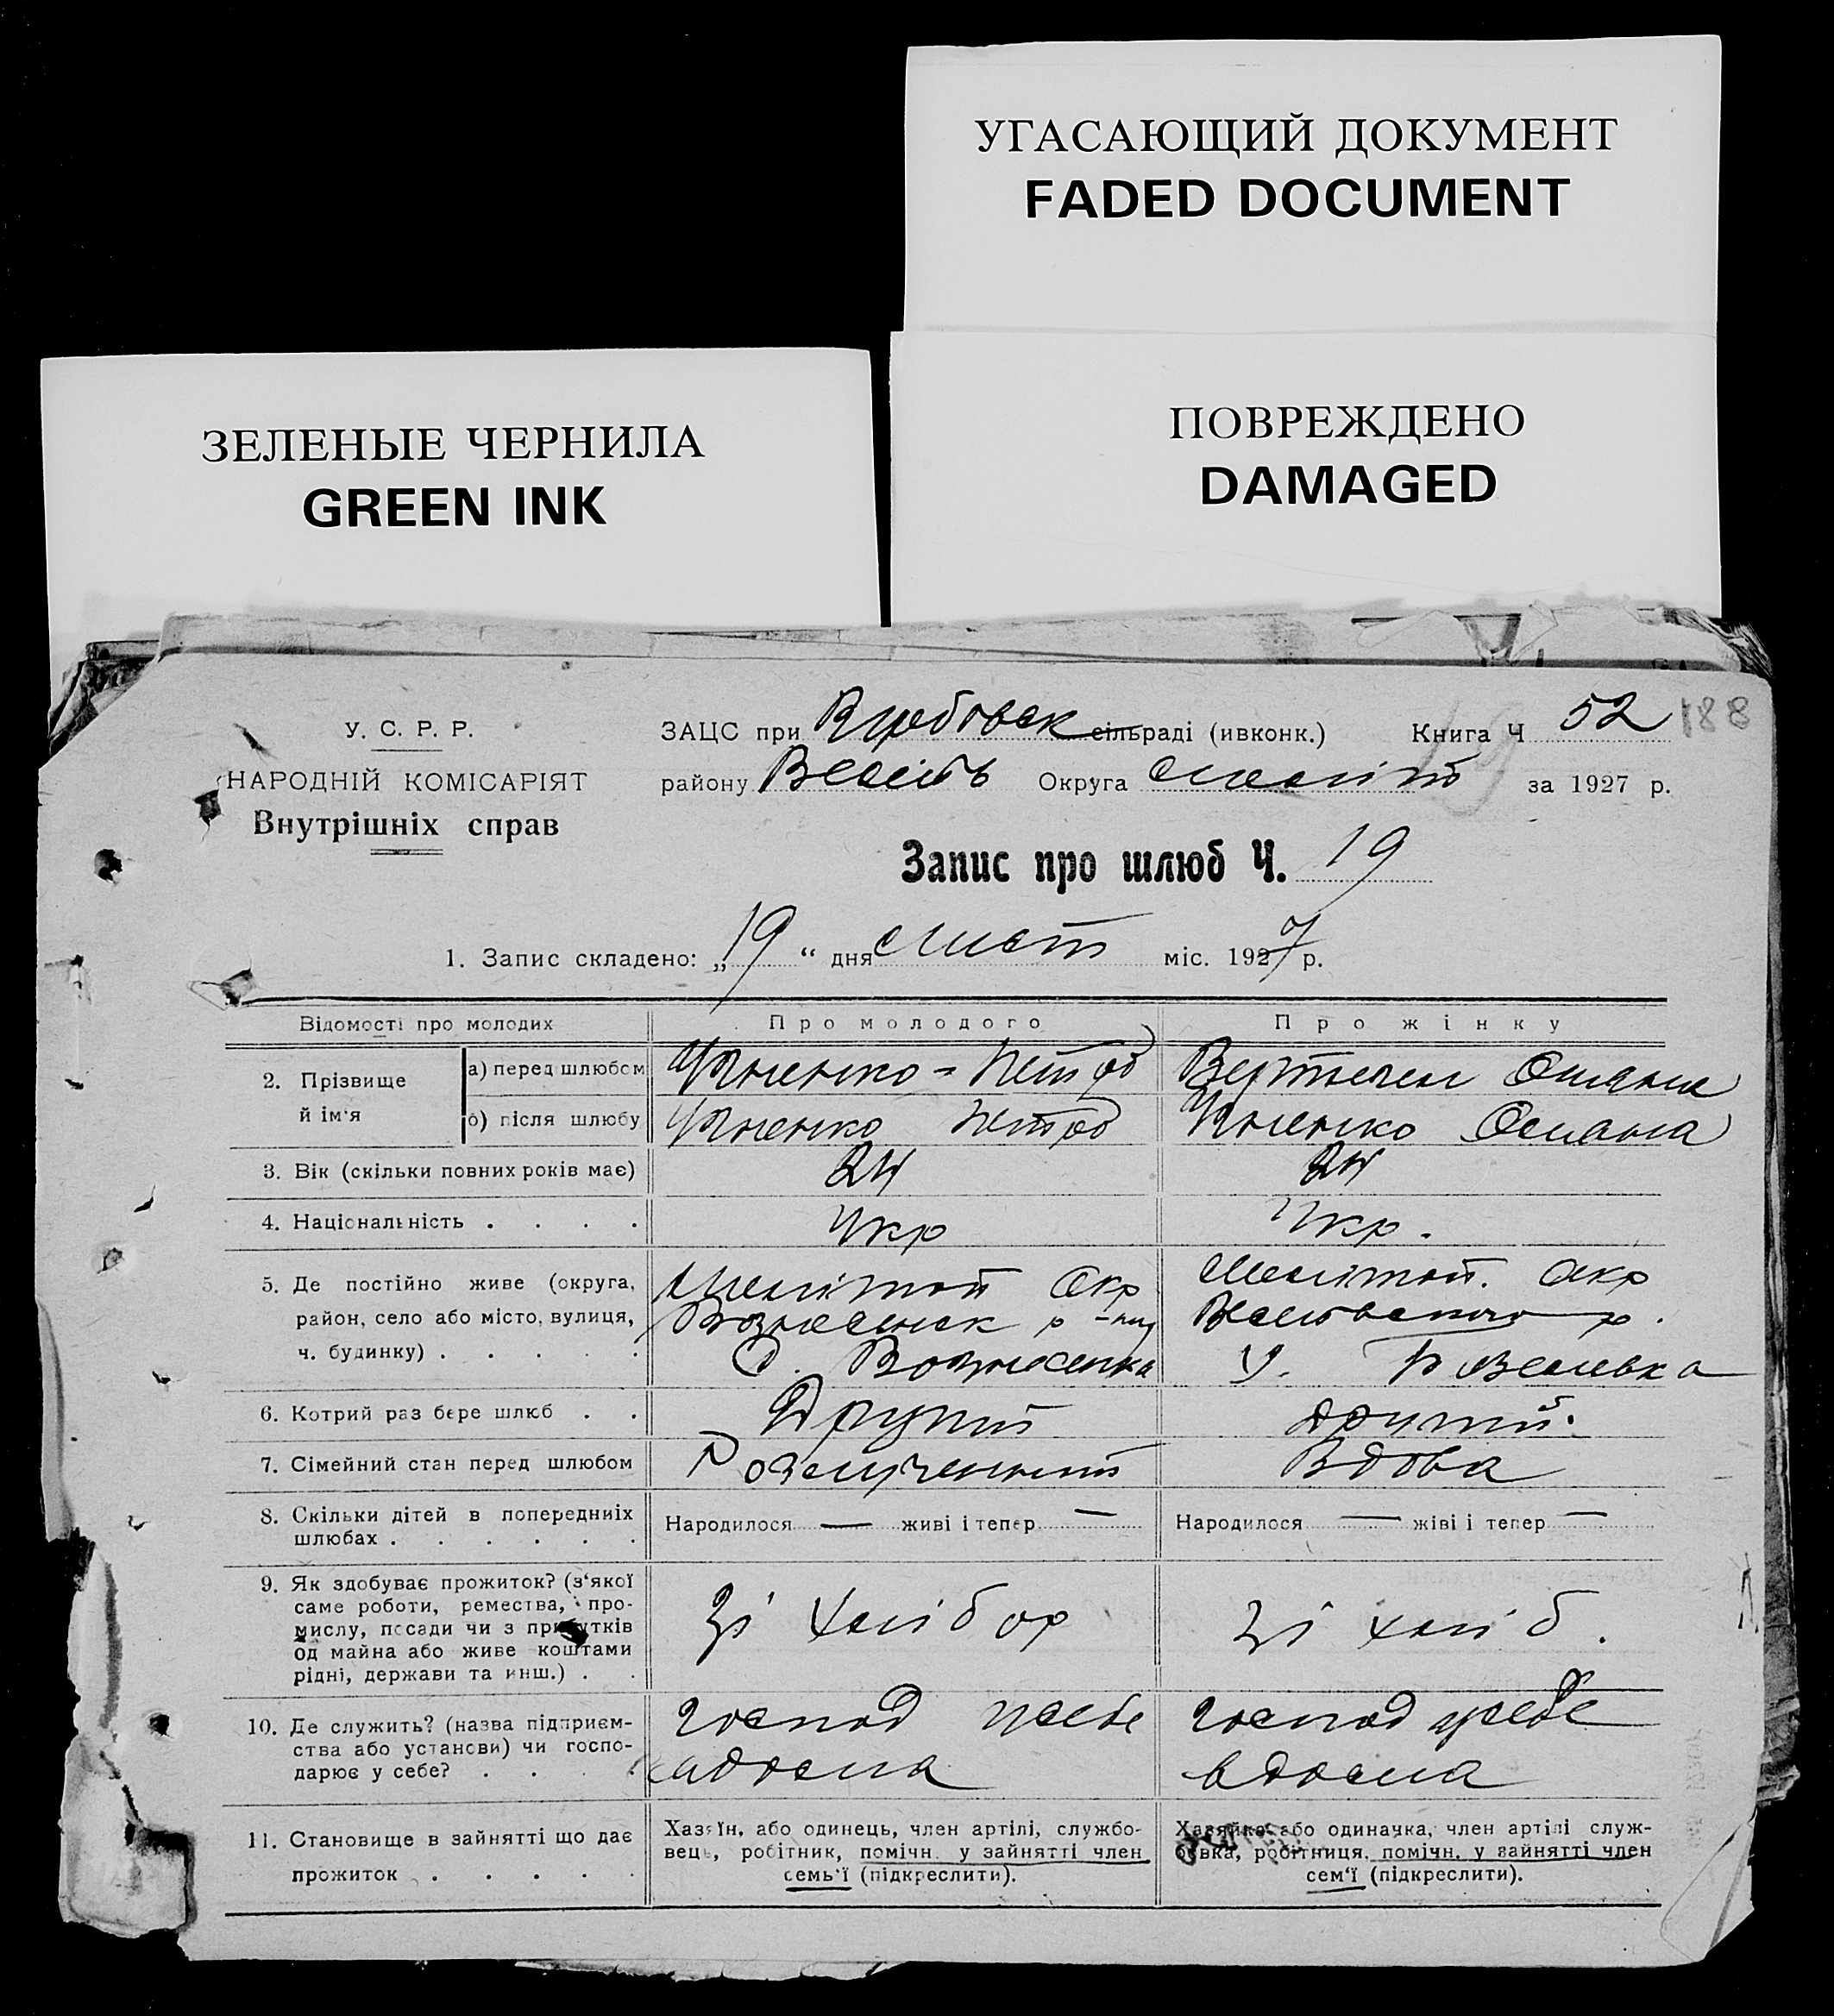 УГАСАЮЩИЙ ДОКУМЕНТ
FADED DOCUMENT
ЗЕЛЕНЫЕ ЧЕРНИЛА
GREEN INK
ПОВРЕЖДЕНО
DAMAGED
У. С. Р. Р.
НАРОДНІЙ КОМІСАРІЯТ
Внутрішніх справ
ЗАЦС при сільраді (ивконк.) Книга Ч 52 188
району Округа Меліт за 1927 р.
Запис про шлюб Ч. 19
1. Запис складено: „19“ дня Лист міс. 1927 р.
Відомості про молодих Про молодого Про жінку
2. Прізвище й ім'я
а) перед шлюбом
б) після шлюбу
3. Вік (скільки повних років має) 24 24
4. Національність . . . . Укр Укр.
5. Де постійно живе (округа, Мелітоп Окр Мелітоп. Окр
район, село або місто, вулиця, Вознесенск р-ну Веселовского р.
ч. будинку) . . . . . С. Вознесенка
6. Котрий раз бере шлюб . . Другий другий.
7. Сімейний стан перед шлюбом Розлученний Вдова
8. Скільки дітей в попередниіх Народилося — живі і тепер — Народилося — жіві і тепер —
шлюбах . . . . . .
9. Як здобуває прожиток? (з'якої
саме роботи, ремества, про-
мислу, посади чи з прибутків Зі хлібор Зі хліб.
од майна або живе коштами
рідні, держави та инш.) . .
10. Де служить? (назва підприєм- господ усебе господ усебе
ства або установи) чи госпо- вдома вдома
дарює у себе? . . . .
11. Становище в зайнятті що дає Хазяїн, або одинець, член артілі, службо- Хазяйка або одиначка, член артілі служ-
прожиток . . . . . вець, робітник, помічн. у зайнятті член бовка, робітниця, помічн. у зайнятті член
семь'ї (підкреслити). сем'ї (підкреслити).